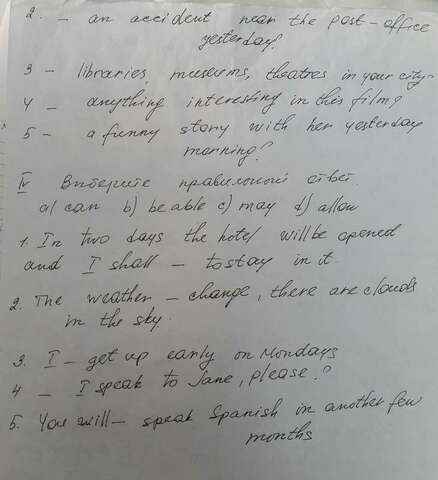 2. – an accident near the post-office
yesterday?
3 – libraries, museums, theatres in your city-
4 – anything interesting in this film?
5 – a funny story with her yesterday
morning?
IV Виберите правильной ответ.
a) can b) be able c) may d) allow
1. In two days the hotel will be opened
and I shall – to stay in it.
2. The weather – change, there are clouds
in the sky.
3. I – get up early on Mondays
4 – I speak to Jane, please?
5. You will – speak Spanish in another few
months